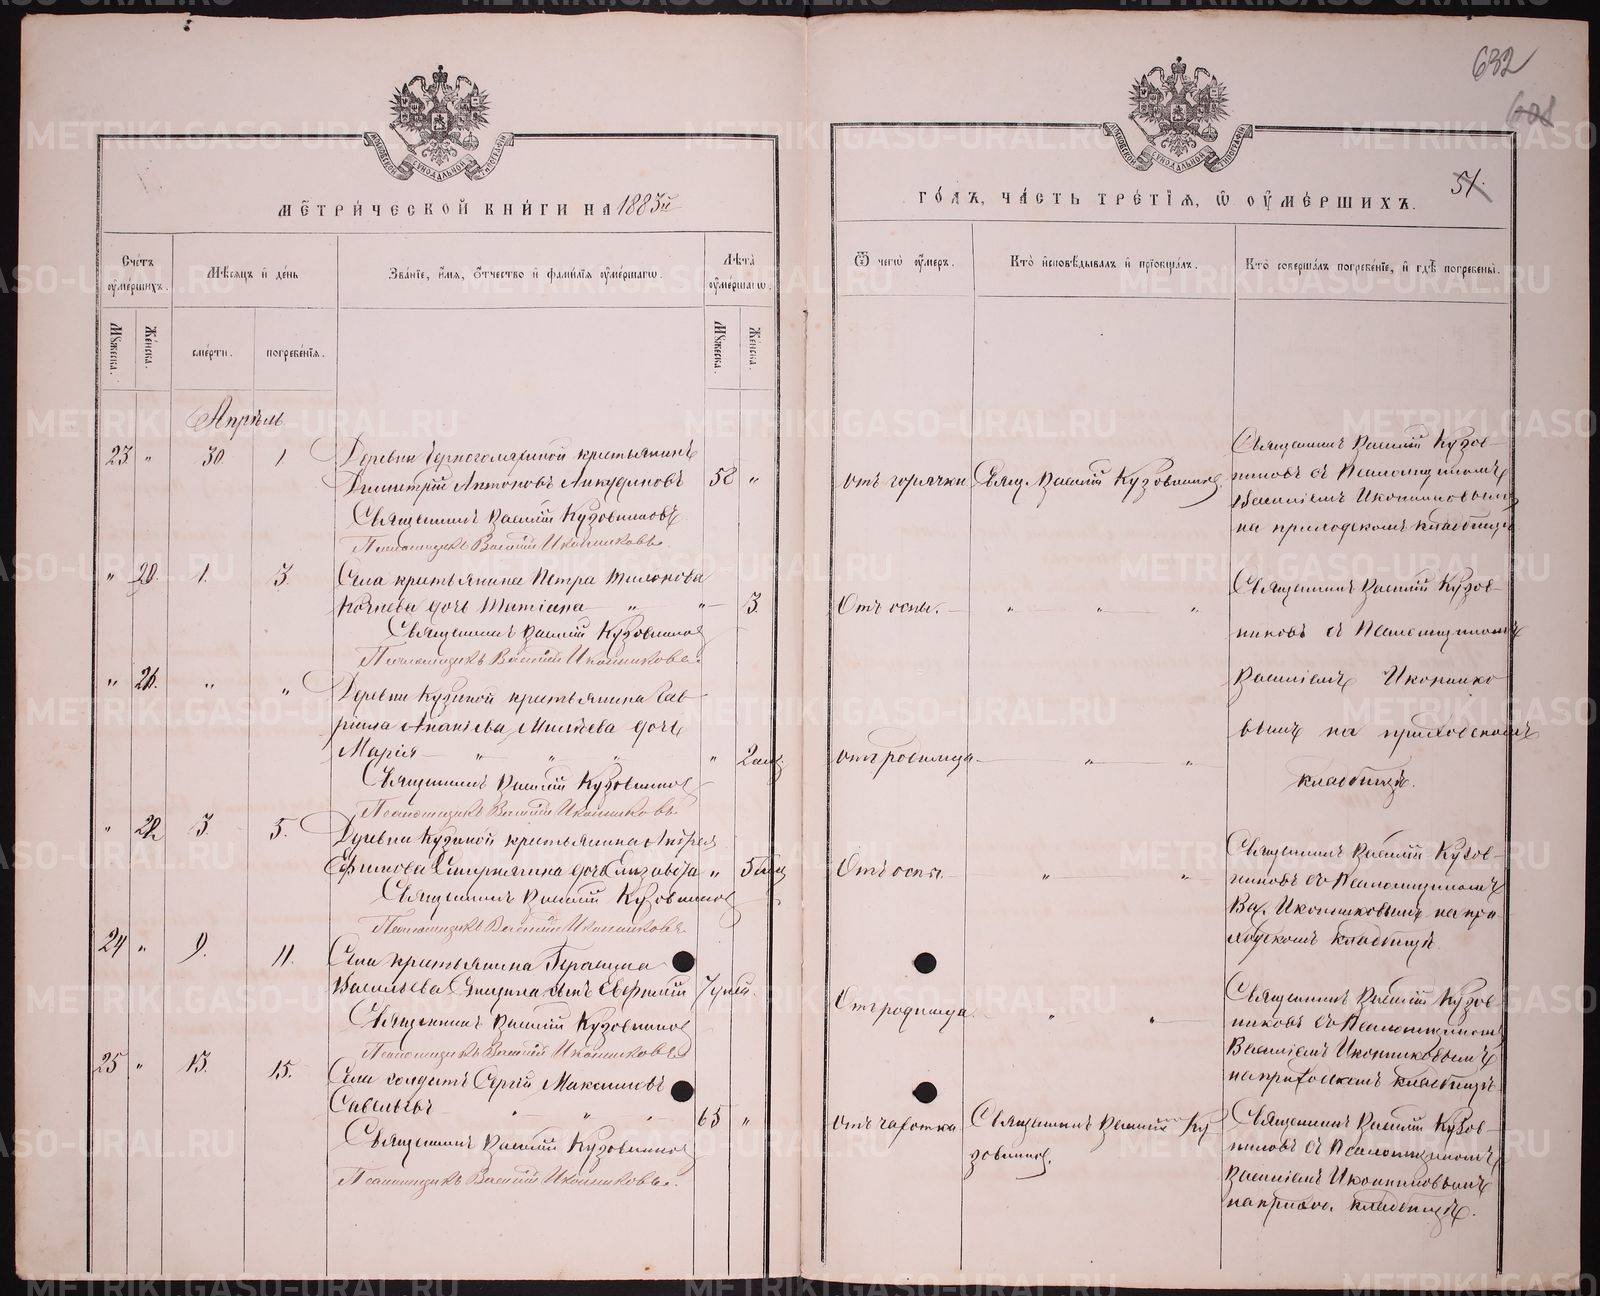 632
601
51.
МЕТРИЧЕСКОЙ КНИГИ НА 1883й
ГОДЪ, ЧАСТЬ ТРЕТІЯ, Ѿ ОУМЕРШИХЪ.
Счетъ оумершихъ.
Мѣсяцъ и день
Званіе, имя, отчество и фамилія оумершагѡ.
Лѣта оумершагѡ.
Ѿ чегѡ оумеръ.
Кто исповѣдывалъ и пріобщалъ.
Кто совершалъ погребеніе, и гдѣ погребены.
Мужеска.
Женска.
смерти.
погребенія.
Мужеска.
Женска.
Апрѣль
23 " 30. 1
Деревни Черноголяхиной крестьянинъ
Димитрій Антоновъ Анкудиновъ 58 "
Священникъ Василій Кузовниковъ
Псаломщикъ Василій Иконниковъ.
отъ горячки
Свящ. Василій Кузовниковъ
Священникъ Василій Кузов-
никовъ съ Псаломщикомъ
Василіемъ Иконниковымъ
на приходскомъ кладбищѣ
" 20. 1. 3.
Села крестьянина Петра
дочь " " 3.
Священникъ Василій Кузовниковъ
Псаломщикъ Василій Иконниковъ.
Отъ оспы. " " "
Священникъ Василій Кузов-
никовъ съ Псаломщикомъ
Василіемъ Иконнико
вымъ на приходскомъ
кладбищѣ.
" 21. " "
Деревни Кузиной крестьянина Гав-
ріила Ананьева дочь
Марія " " " " 2
Священникъ Василій Кузовниковъ
Псаломщикъ Василій Иконниковъ
отъ родимца " "
" 22. 3. 5.
Деревни Кузиной крестьянина Андрея
Ефимова дочь Елизавета " 5
Священникъ Василій Кузовниковъ
Псаломщикъ Василій Иконниковъ.
Отъ оспы. " "
Священникъ Василій Кузов-
никовъ съ Псаломщикомъ
Вас. Иконниковымъ на при-
ходскомъ кладбищѣ.
24 " 9. 11.
Села крестьянина Герасима
Васильева сынъ Евфимій 7 дней.
Священникъ Василій Кузовниковъ
Псаломщикъ Василій Иконниковъ
Отъ родимца " "
Священникъ Василій Кузов
никовъ съ Псаломщикомъ
Василіемъ Иконниковымъ
на приходскомъ кладбищѣ.
25 " 13. 15.
Села солдатъ Сергій Максимовъ
Савельевъ " " " 65 "
Священникъ Василій Кузовниковъ
Псаломщикъ Василій Иконниковъ.
отъ чахотки
Священникъ Василій Ку
зовниковъ.
Священникъ Василій Кузов-
никовъ съ Псаломщикомъ
Василіемъ Иконниковымъ
на прихос. кладбищѣ.
METRIKI.GASO-URAL.RU